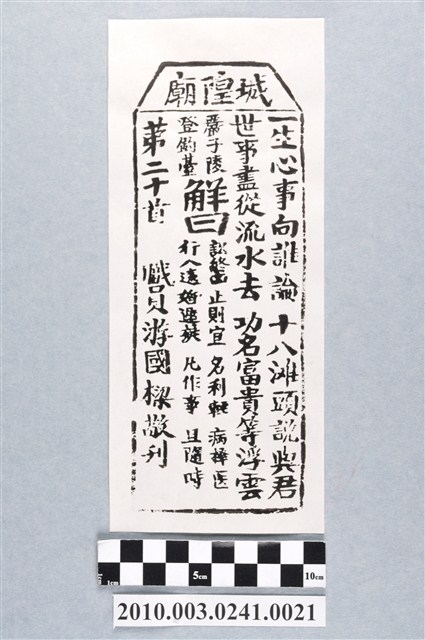 城隍廟
一生心事向誰論 十八灘頭說與君
世事盡從流水去 功名富貴等浮雲
嚴子陵
登釣臺
解曰
訟終凶 止則宜 名利輕 病擇医
行人遠 婚遲娗 凡作事 且隨時
第二十首 戲贝游國樑敬刋
1cm
5cm
10cm
2010.003.0241.0021